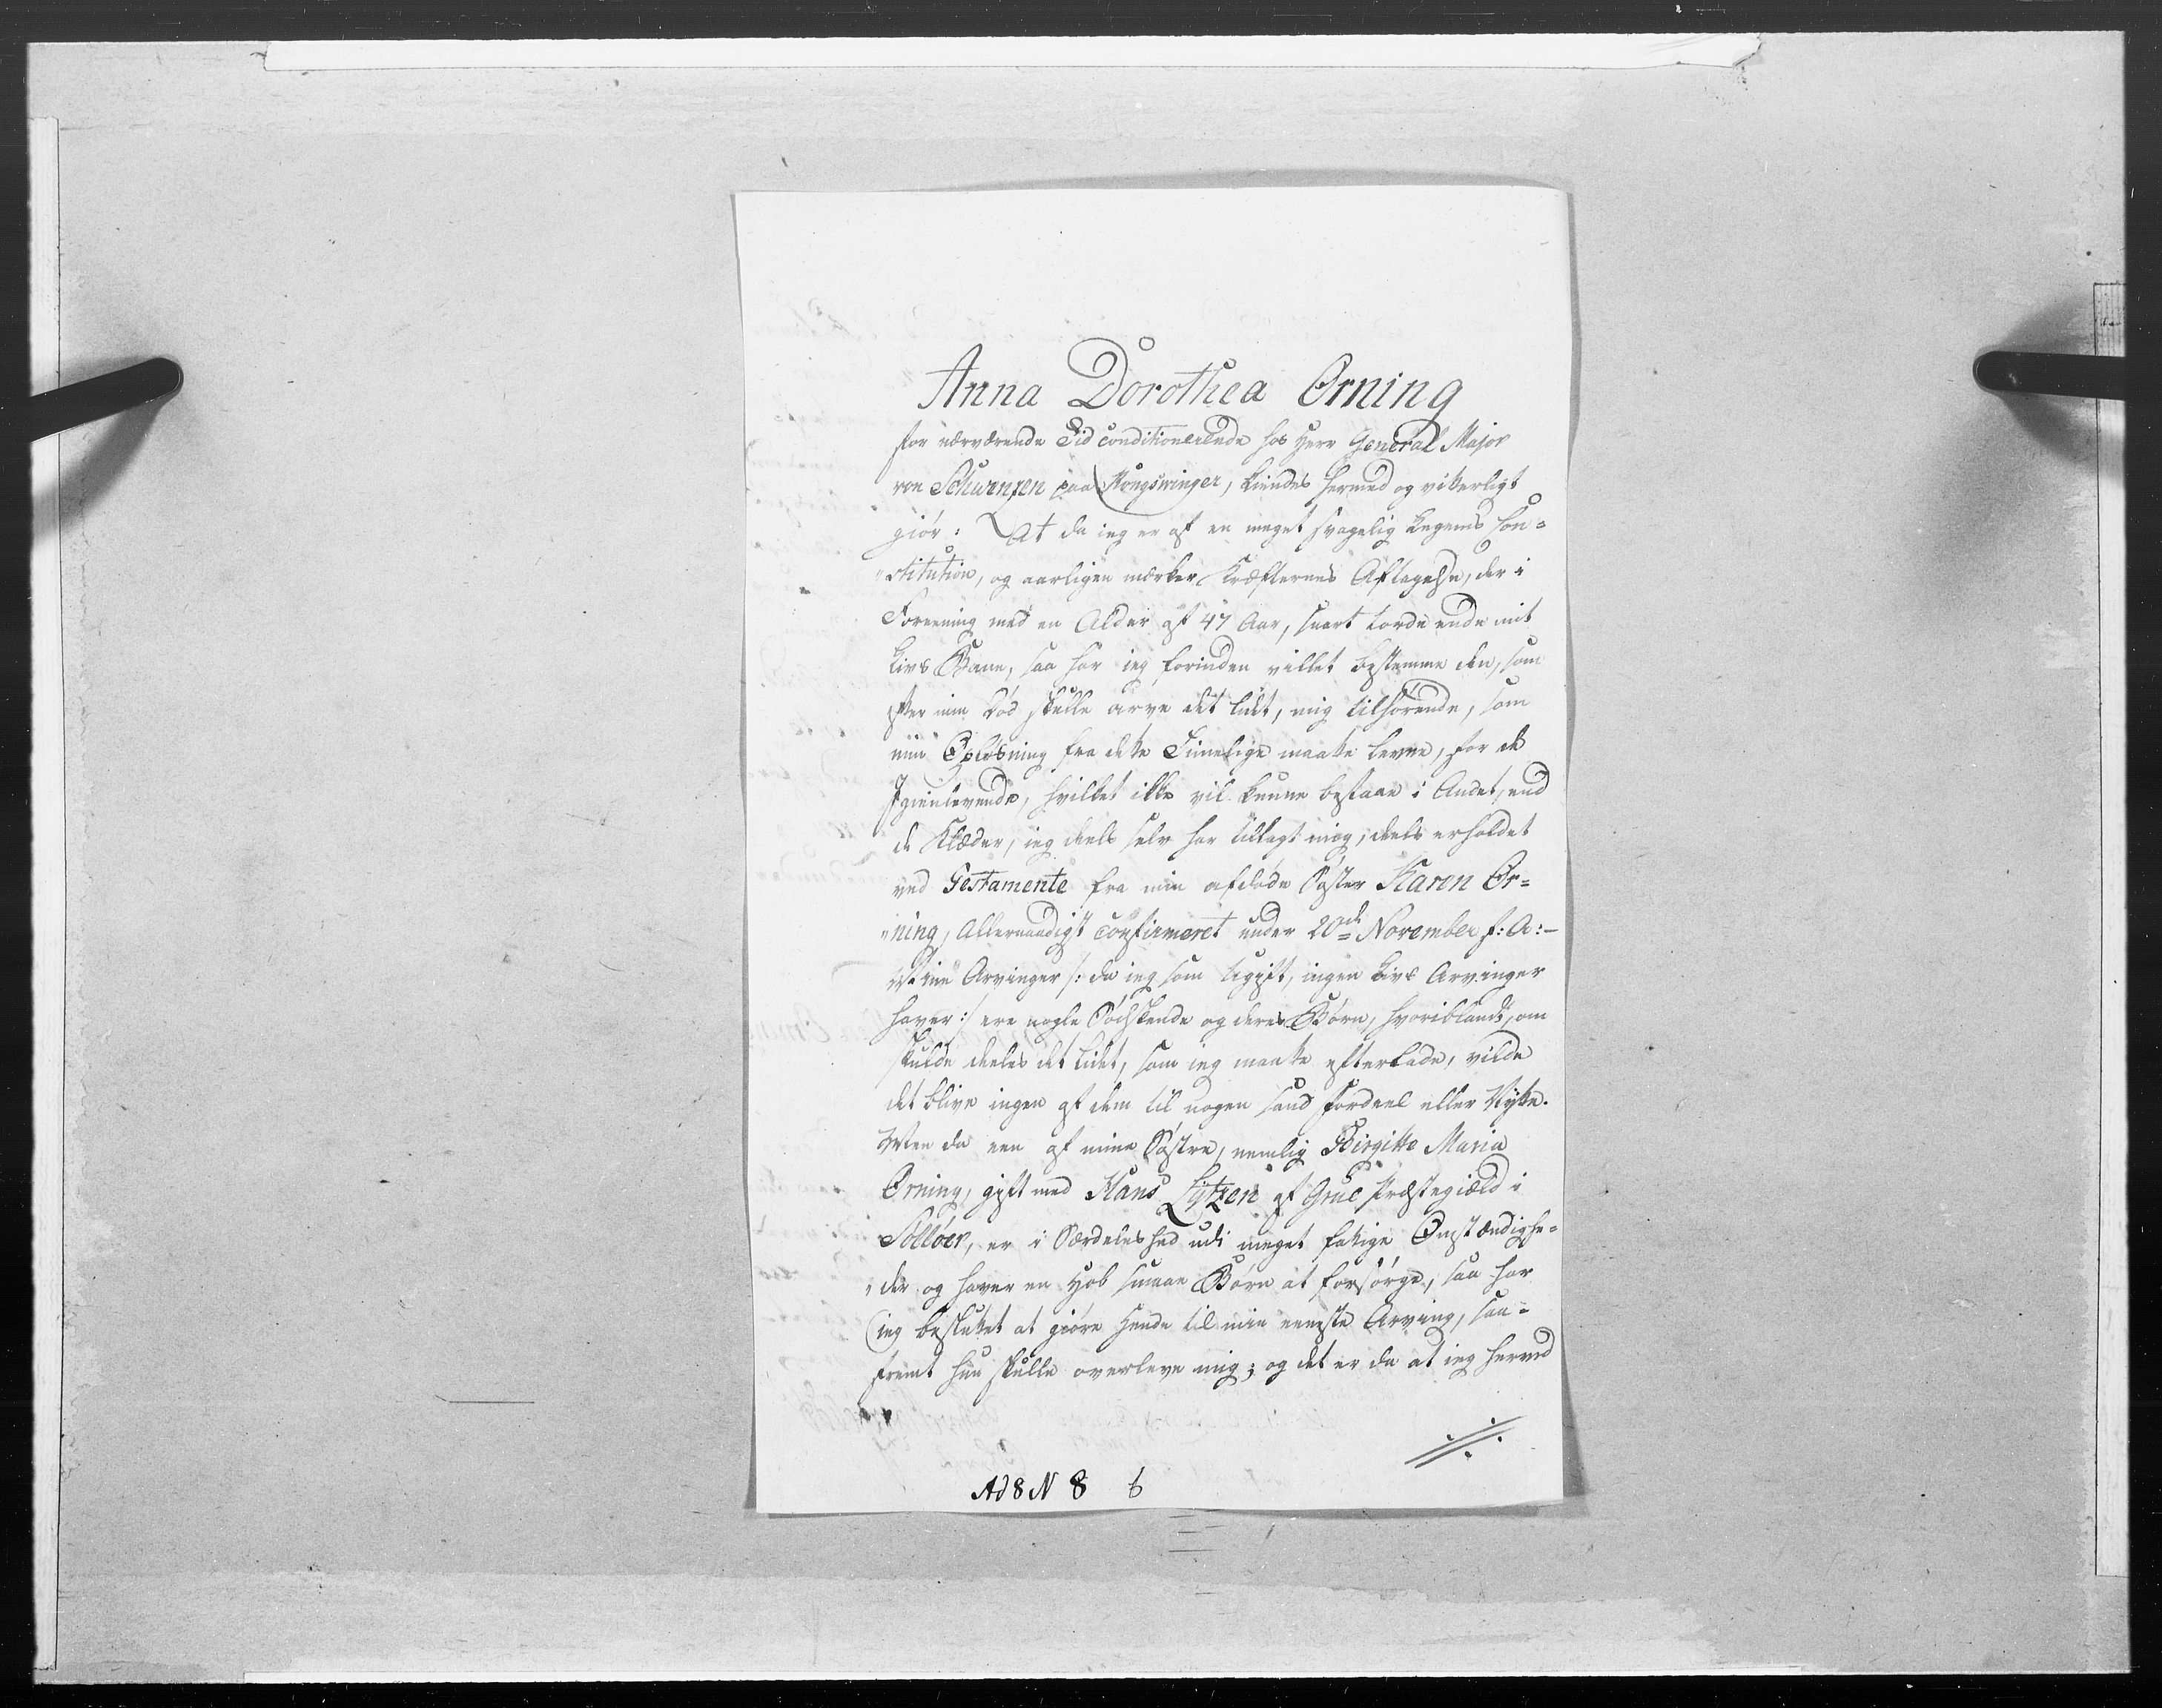 Anna Dorothea Örning
for nærværende Tid conditionerende hos Herr General Major
von Schwensen paa Kongswinger, kiendes hermed og vitterligt
giör: At da ieg er af en meget svagelig Legems Con=
"stitution, og aarligen mærker Kræfternes Aftagelse, der i
Foreening med en Alder af 47 Aar, snart torde ende mit
Livs Bane, saa har ieg forinden villet bestemme den, som
efter min Död skulle arve det lidet, mig tilhörende, som
min Oplösning fra dette Timelige maatte levne, for de
Igienlevende, hvilket ikke vil kunne bestaae i Andet, end
de Klæder, ieg deels selv har tillagt mig, deels erholdet
ved Testamente fra min afdöde Söster Karen Ör=
"ning, Allernaadigst confirmeret under 20de November f: A:-
Mine Arvinger /: da ieg som ugift, ingen Livs Arvinger
haver :/ ere nogle Södskende og deres Börn, hvoriblandt, om
skulde deeles det lidet, som ieg maatte efterlade, vilde
det blive ingen af dem til nogen sand Fordeel eller Nytte.
Men da een af mine Söstre, nemlig Birgitte Maria
Örning, gift med Hans Lytzen af Grue Præstegield i
Sollöer, er i Særdeleshed udi meget fattige Omstændighe=
"der og haver en Hob smaae Börn at forsörge, saa har
ieg besluttet at giöre Hende til min eeneste Arving, saa=
fremt hun skulle overleve mig; og det er da at ieg herved
Ad 8 N 8 b